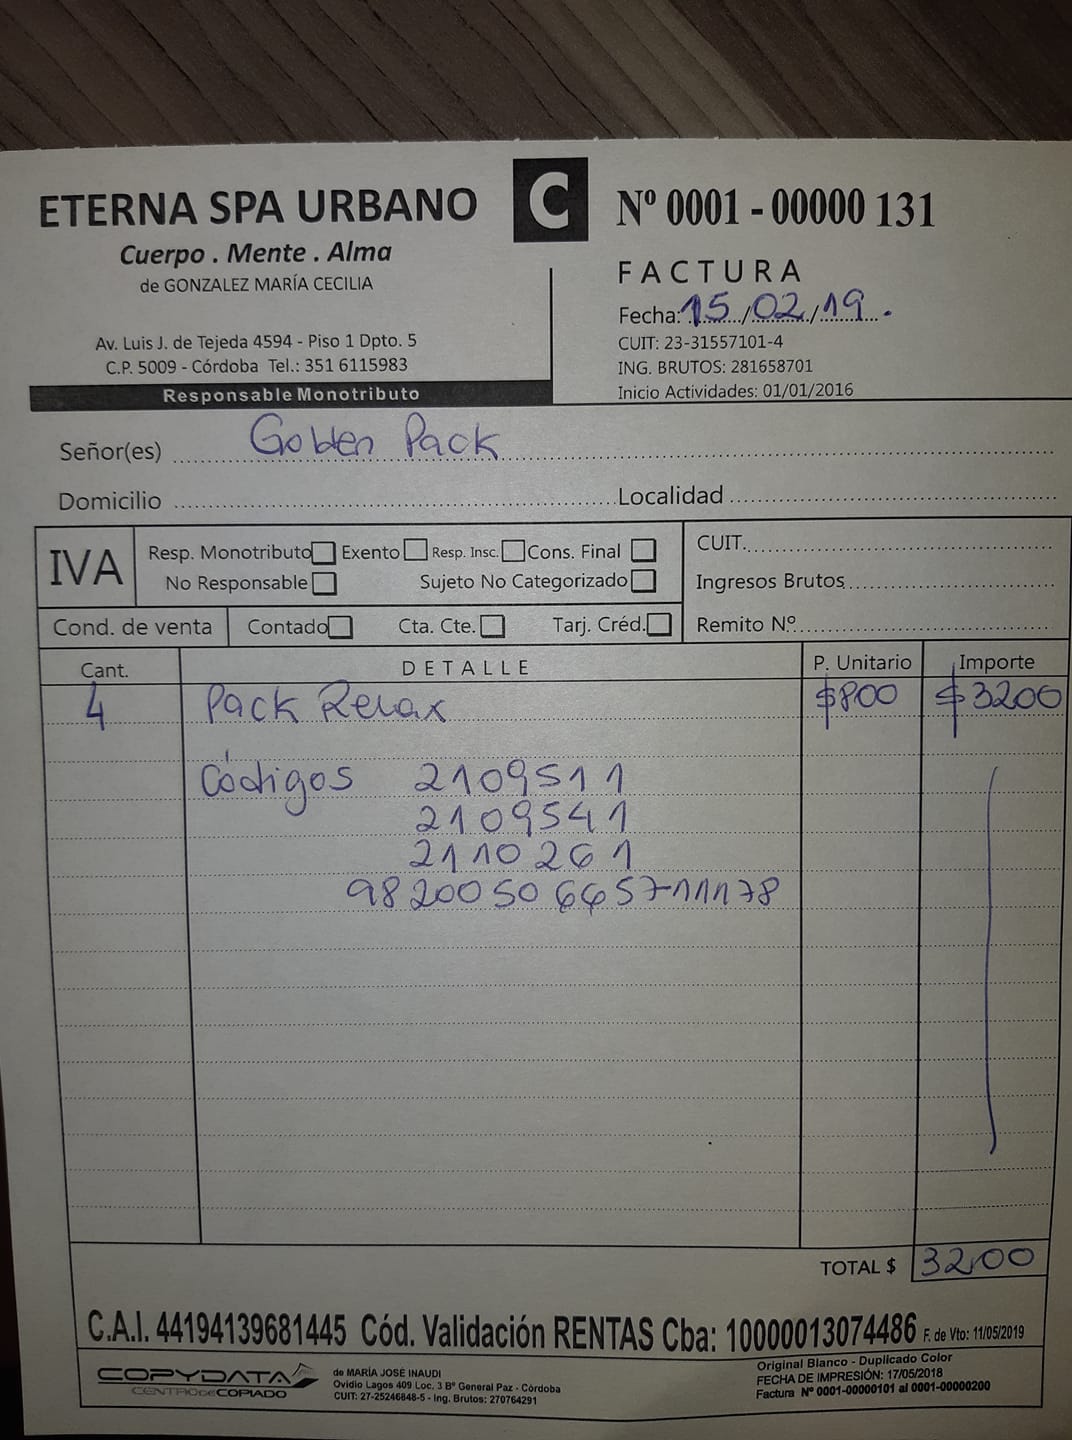 ETERNA SPA URBANO
Cuerpo . Mente . Alma
de GONZALEZ MARÍA CECILIA
Av. Luis J. de Tejeda 4594 - Piso 1 Dpto. 5
C.P. 5009 - Córdoba Tel.: 351 6115983
Responsable Monotributo
C
Nº 0001 - 00000 131
FACTURA
Fecha: 15/02/19.
CUIT: 23-31557101-4
ING. BRUTOS: 281658701
Inicio Actividades: 01/01/2016
Señor(es) Golden Pack
Domicilio Localidad
IVA Resp. Monotributo Exento Resp. Insc. Cons. Final
No Responsable Sujeto No Categorizado
CUIT.
Ingresos Brutos
Cond. de venta Contado Cta. Cte. Tarj. Créd. Remito Nº
Cant. DETALLE P. Unitario Importe
4 Pack Relax $800 $3200
Códigos 2109511
2109541
2110261
9820050665711178
TOTAL $ 3200
C.A.I. 44194139681445 Cód. Validación RENTAS Cba: 10000013074486 F. de Vto: 11/05/2019
COPYDATA
CENTRO DE COPIADO
de MARÍA JOSÉ INAUDI
Ovidio Lagos 409 Loc. 3 Bº General Paz - Córdoba
CUIT: 27-25246848-5 - Ing. Brutos: 270764291
Original Blanco - Duplicado Color
FECHA DE IMPRESIÓN: 17/05/2018
Factura Nº 0001-00000101 al 0001-00000200